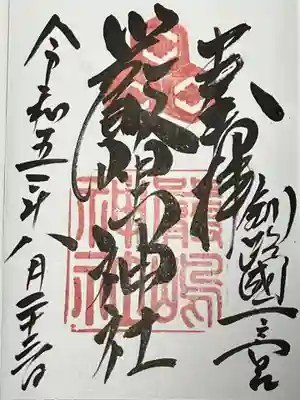 奉拝
釧路國一之宮
厳嶋神社
令和五年八月二十三日
嚴嶋神社